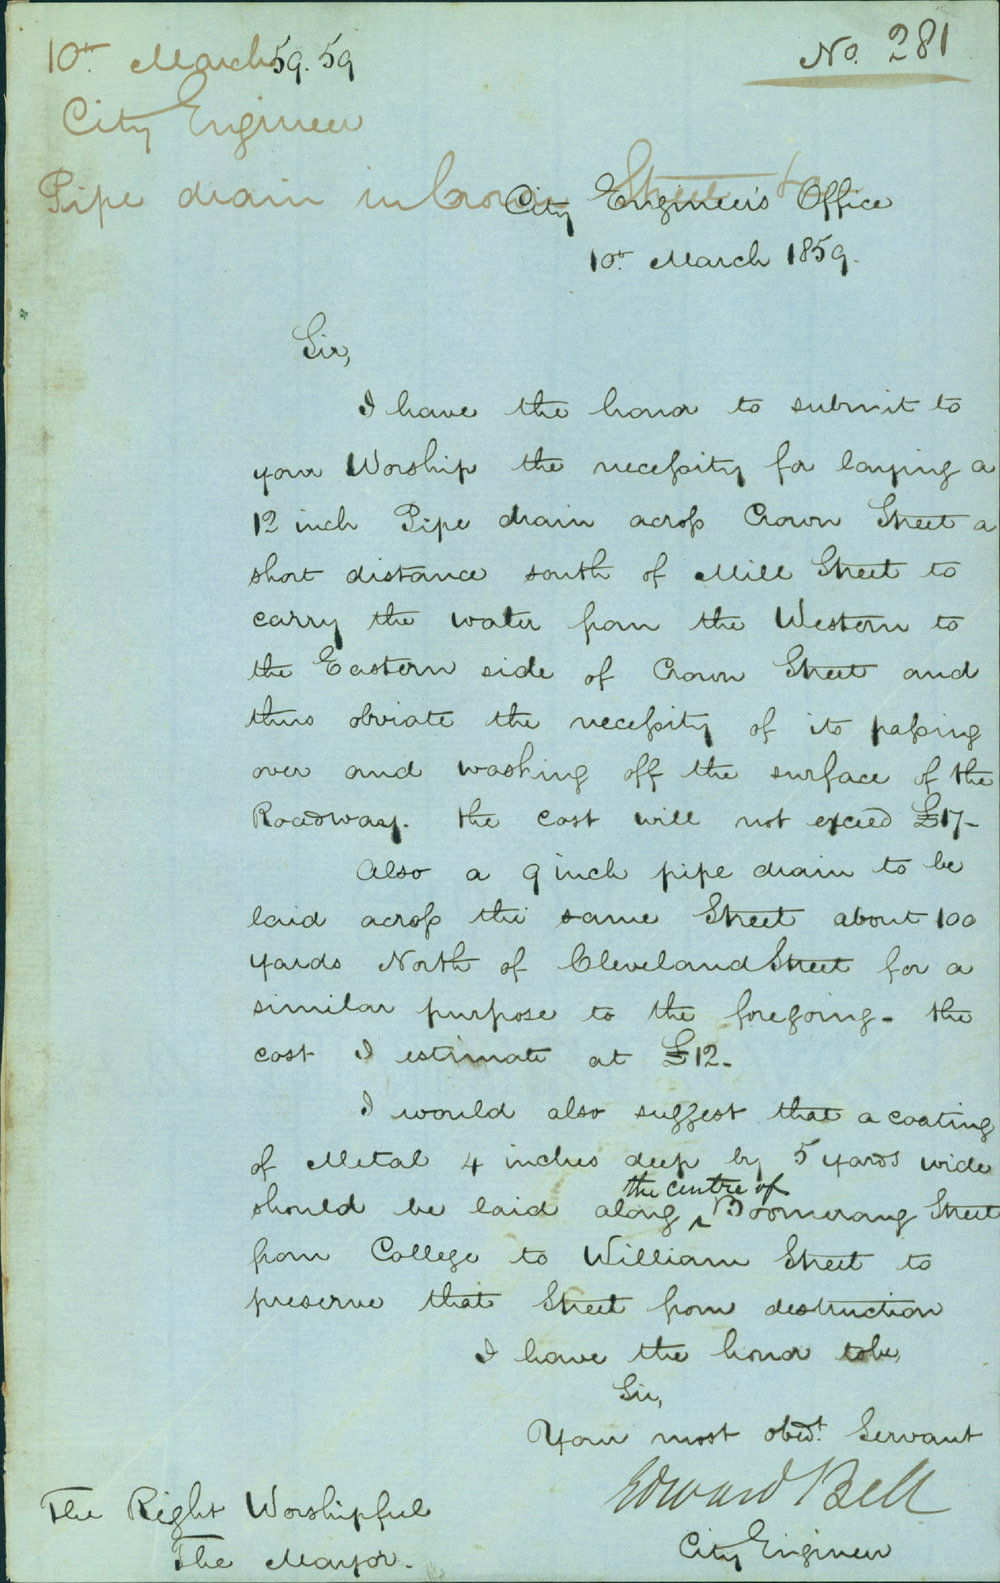 10th March 59. 59
No. 281
City Engineer
Pipe drain in Crown Street &c
City Engineer's Office
10th March 1859.
Sir,
I have the honor to submit to
your Worship the necessity for laying a
12 inch Pipe drain across Crown Street a
short distance south of Mill Street to
carry the water from the Western to
the Eastern side of Crown Street and
thus obviate the necessity of its passing
over and washing off the surface of the
Roadway. the cost will not exceed £17-
Also a 9 inch pipe drain to be
laid across the same Street about 100
yards North of Cleveland Street for a
similar purpose to the foregoing - the
cost I estimate at £12-
I would also suggest that a coating
of Metal 4 inches deep by 5 yards wide
should be laid along the centre of Boomerang Street
from College to William Street to
preserve that Street from destruction
I have the honor to be,
Sir,
Your most obedt. Servant
Edward Bell
City Engineer
The Right Worshipful
The Mayor.